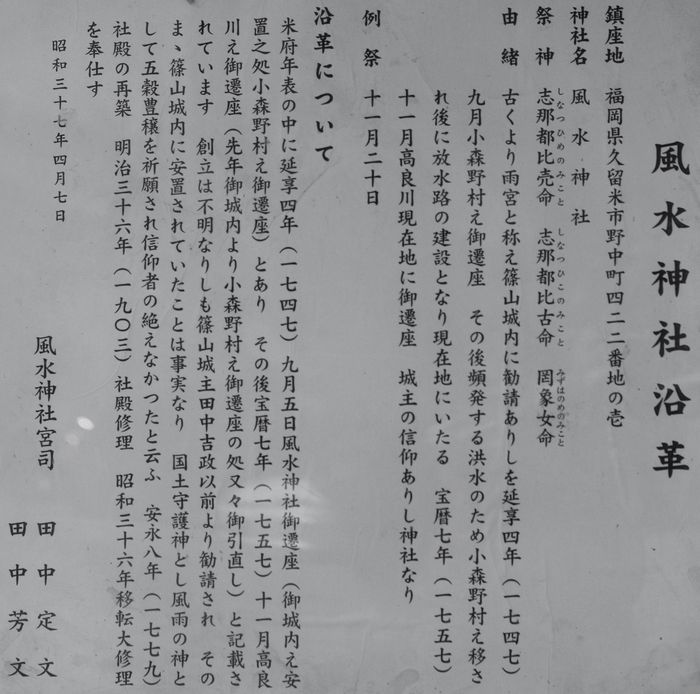 風水神社沿革
鎮座地　福岡県久留米市野中町四二二番地の壱
神社名　風水神社
祭神　志那都比売命　志那都比古命　罔象女命
しなつひめのみこと　しなつひこのみこと　みずはのめのみこと
由緒　古くより雨宮と称え篠山城内に勧請ありしを延享四年（一七四七）
九月小森野村え御遷座　その後頻発する洪水のため小森野村え移さ
れ後に放水路の建設となり現在地にいたる　宝暦七年（一七五七）
十一月高良川現在地に御遷座　城主の信仰ありし神社なり
例祭　十一月二十日
沿革について
米府年表の中に延享四年（一七四七）九月五日風水神社御遷座（御城内え安
置之処小森野村え御遷座）とあり　その後宝暦七年（一七五七）十一月高良
川え御遷座（先年御城内より小森野村え御遷座の処又々御引直し）と記載さ
れています　創立は不明なりしも篠山城主田中吉政以前より勧請され　その
まゝ篠山城内に安置されていたことは事実なり　国土守護神とし風雨の神と
して五穀豊穣を祈願され信仰者の絶えなかつたと云ふ　安永八年（一七七九）
社殿の再築　明治三十六年（一九〇三）社殿修理　昭和三十六年移転大修理
を奉仕す
昭和三十七年四月七日
風水神社宮司　田中定文
田中芳文